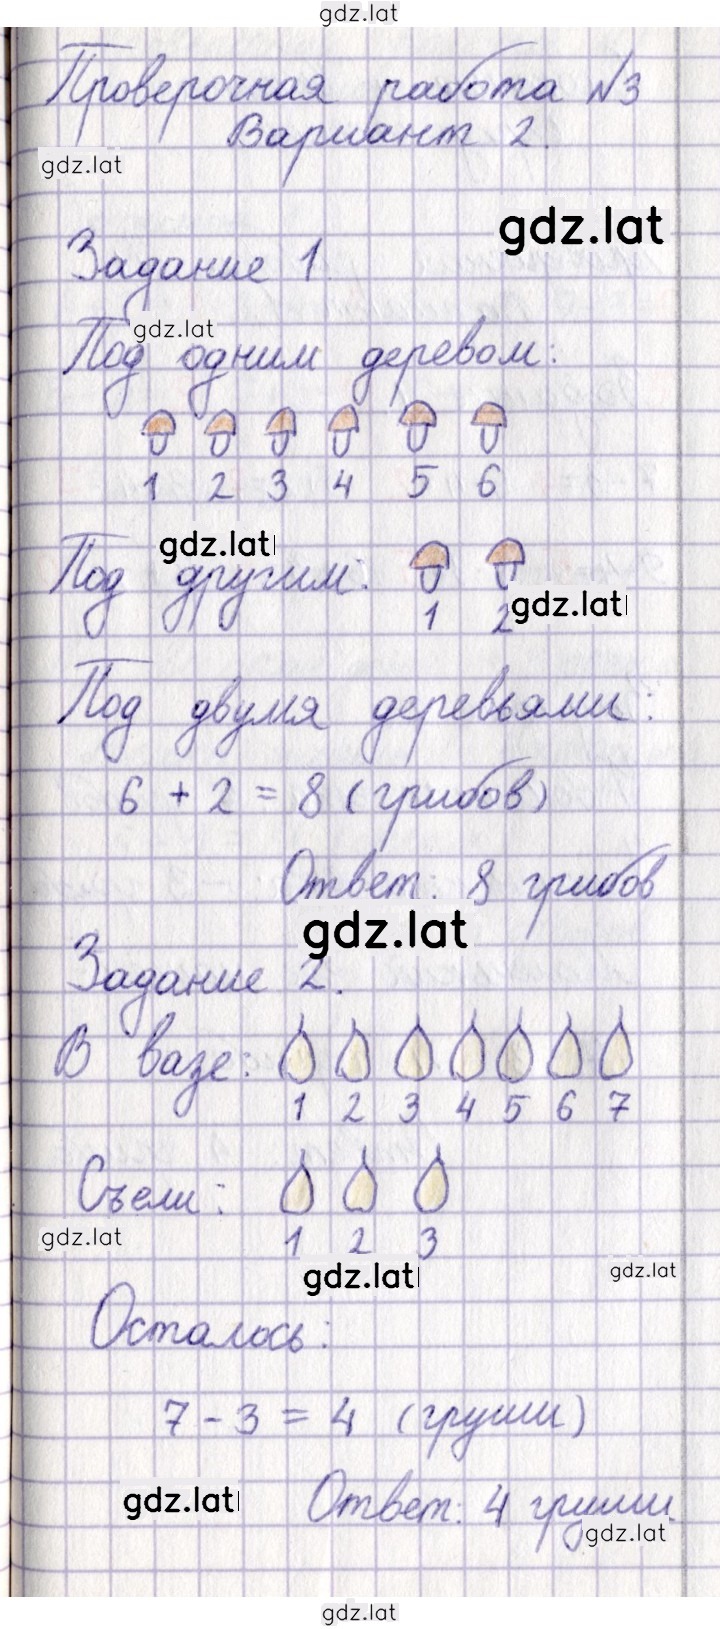 gdz.lat
Проверочная работа №3
Вариант 2.
gdz.lat
gdz.lat
Задание 1.
gdz.lat
Под одним деревом:
1 2 3 4 5 6
gdz.lat
Под другим:
gdz.lat
1 2
Под двумя деревьями:
6 + 2 = 8 (грибов)
Ответ: 8 грибов
gdz.lat
Задание 2.
В вазе:
1 2 3 4 5 6 7
Съели:
gdz.lat
1 2 3
gdz.lat
gdz.lat
Осталось:
7 - 3 = 4 (груши)
gdz.lat
Ответ: 4 груши.
gdz.lat
gdz.lat